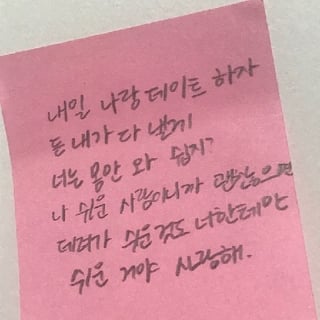 내일 나랑 데이트 하자
돈 내가 다 낼게
너는 몸만 와 쉽지?
나 쉬운 사람이니까 괜찮으면
데려가 쉬운것도 너한테만
쉬운 거야 사랑해.